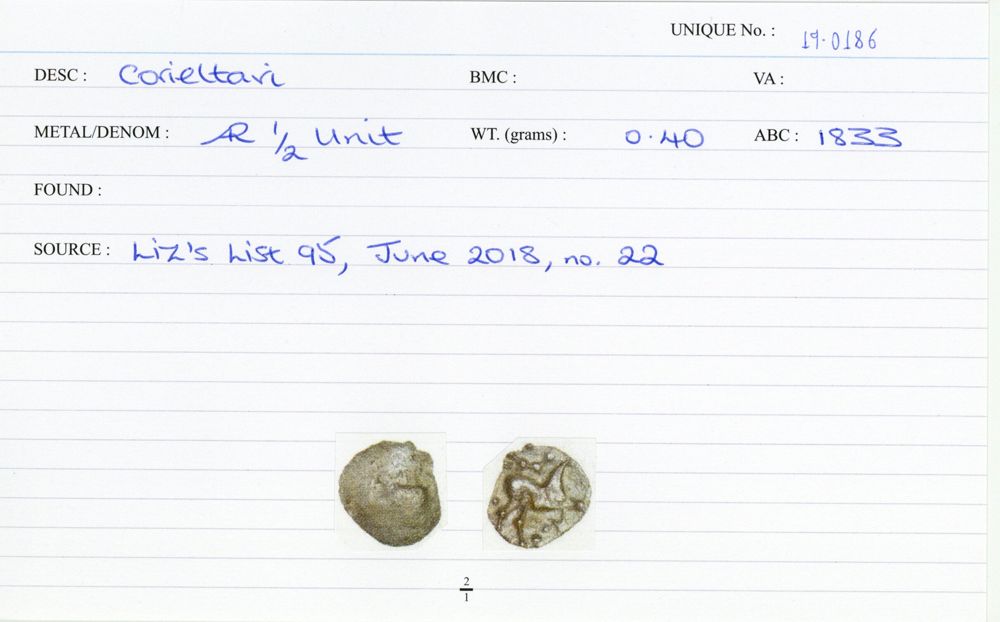 UNIQUE No. : 19.0186
DESC : Corieltavi BMC : VA :
METAL/DENOM : AR 1/2 Unit WT. (grams) : 0.40 ABC : 1833
FOUND :
SOURCE : Liz's List 95, June 2018, no. 22
2
1